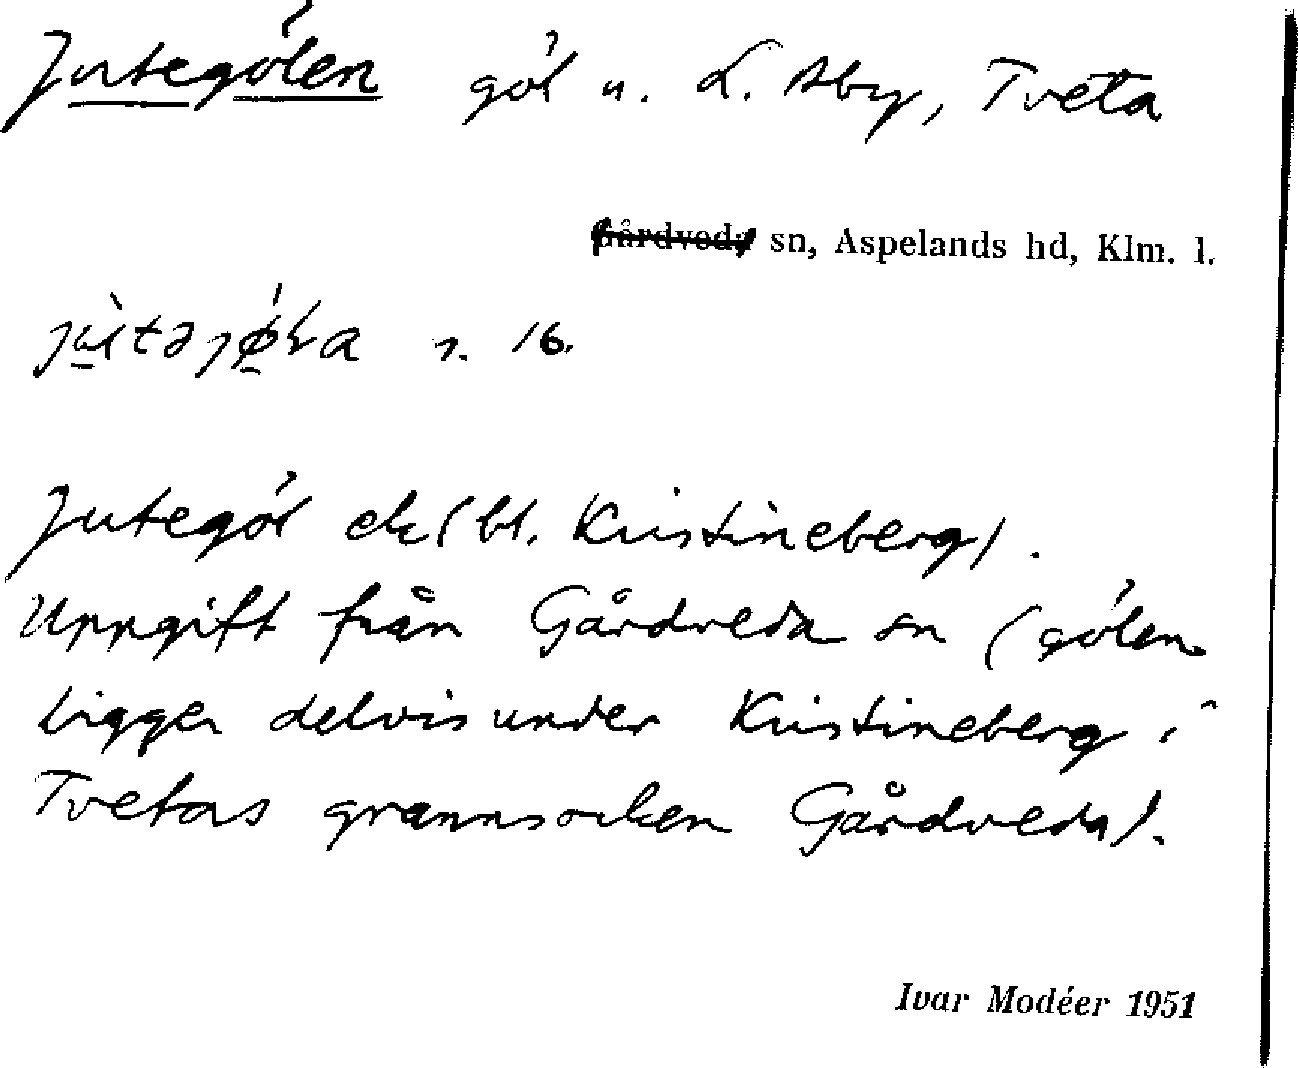 Jutegölen göl u. L. Aby, Tveta
Gårdveda sn, Aspelands hd, Klm. l.
s. 16.
Jutegöl ek (bl. Kristineberg).
Uppgift från Gårdveda sn (gölen
ligger delvis under Kristineberg i
Tvetas grannsocken Gårdveda).
Ivar Modéer 1951